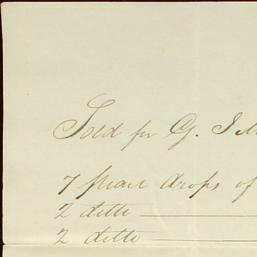 Sold for G. I
7 pearl drops of
2 ditto
2 ditto